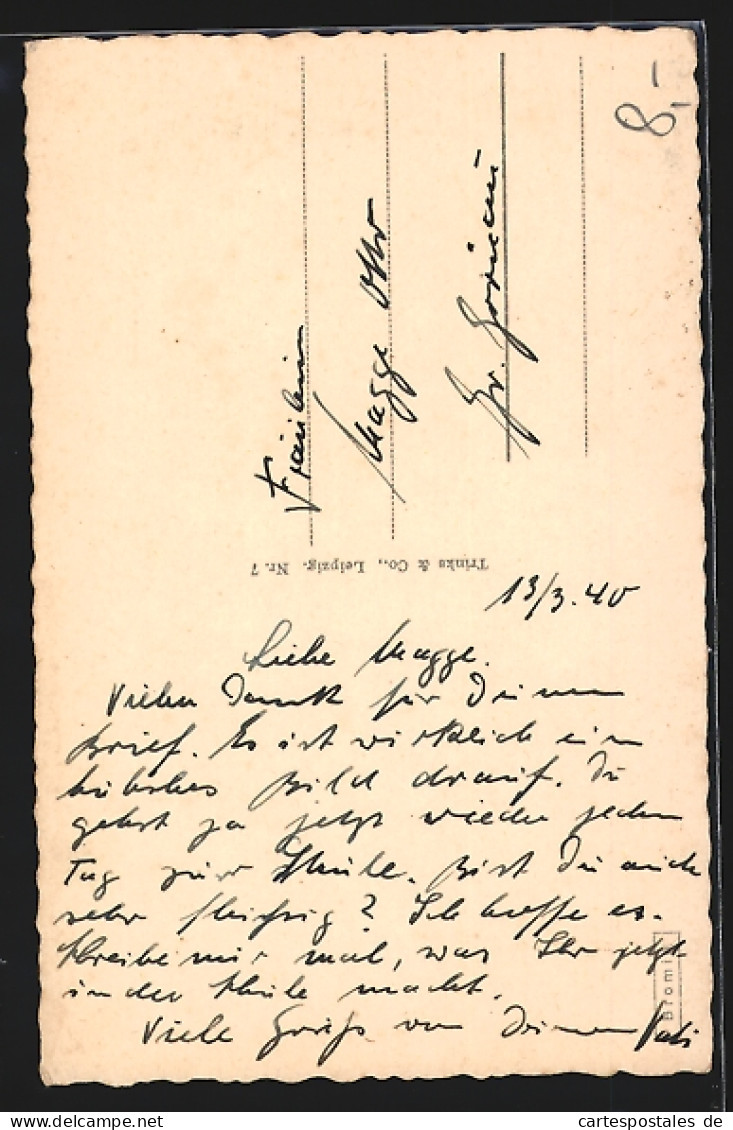 8,-
Fräulein
Magge Otto
Gr.
Trinks & Co., Leipzig. Nr. 7
13/3.40
Liebe Magge.
Vielen Dank für Deinen
Brief. Es ist wirklich ein
hübsches Bild drauf. Du
gehst ja jetzt wieder jeden
Tag zur Schule. Bist Du auch
sehr fleißig? Ich hoffe es.
Schreibe mir mal, was Ihr jetzt
in der Schule macht.
Viele Grüße von Deinem Vati
Bromi
www.cartespostales-de.com
cartespostales.de